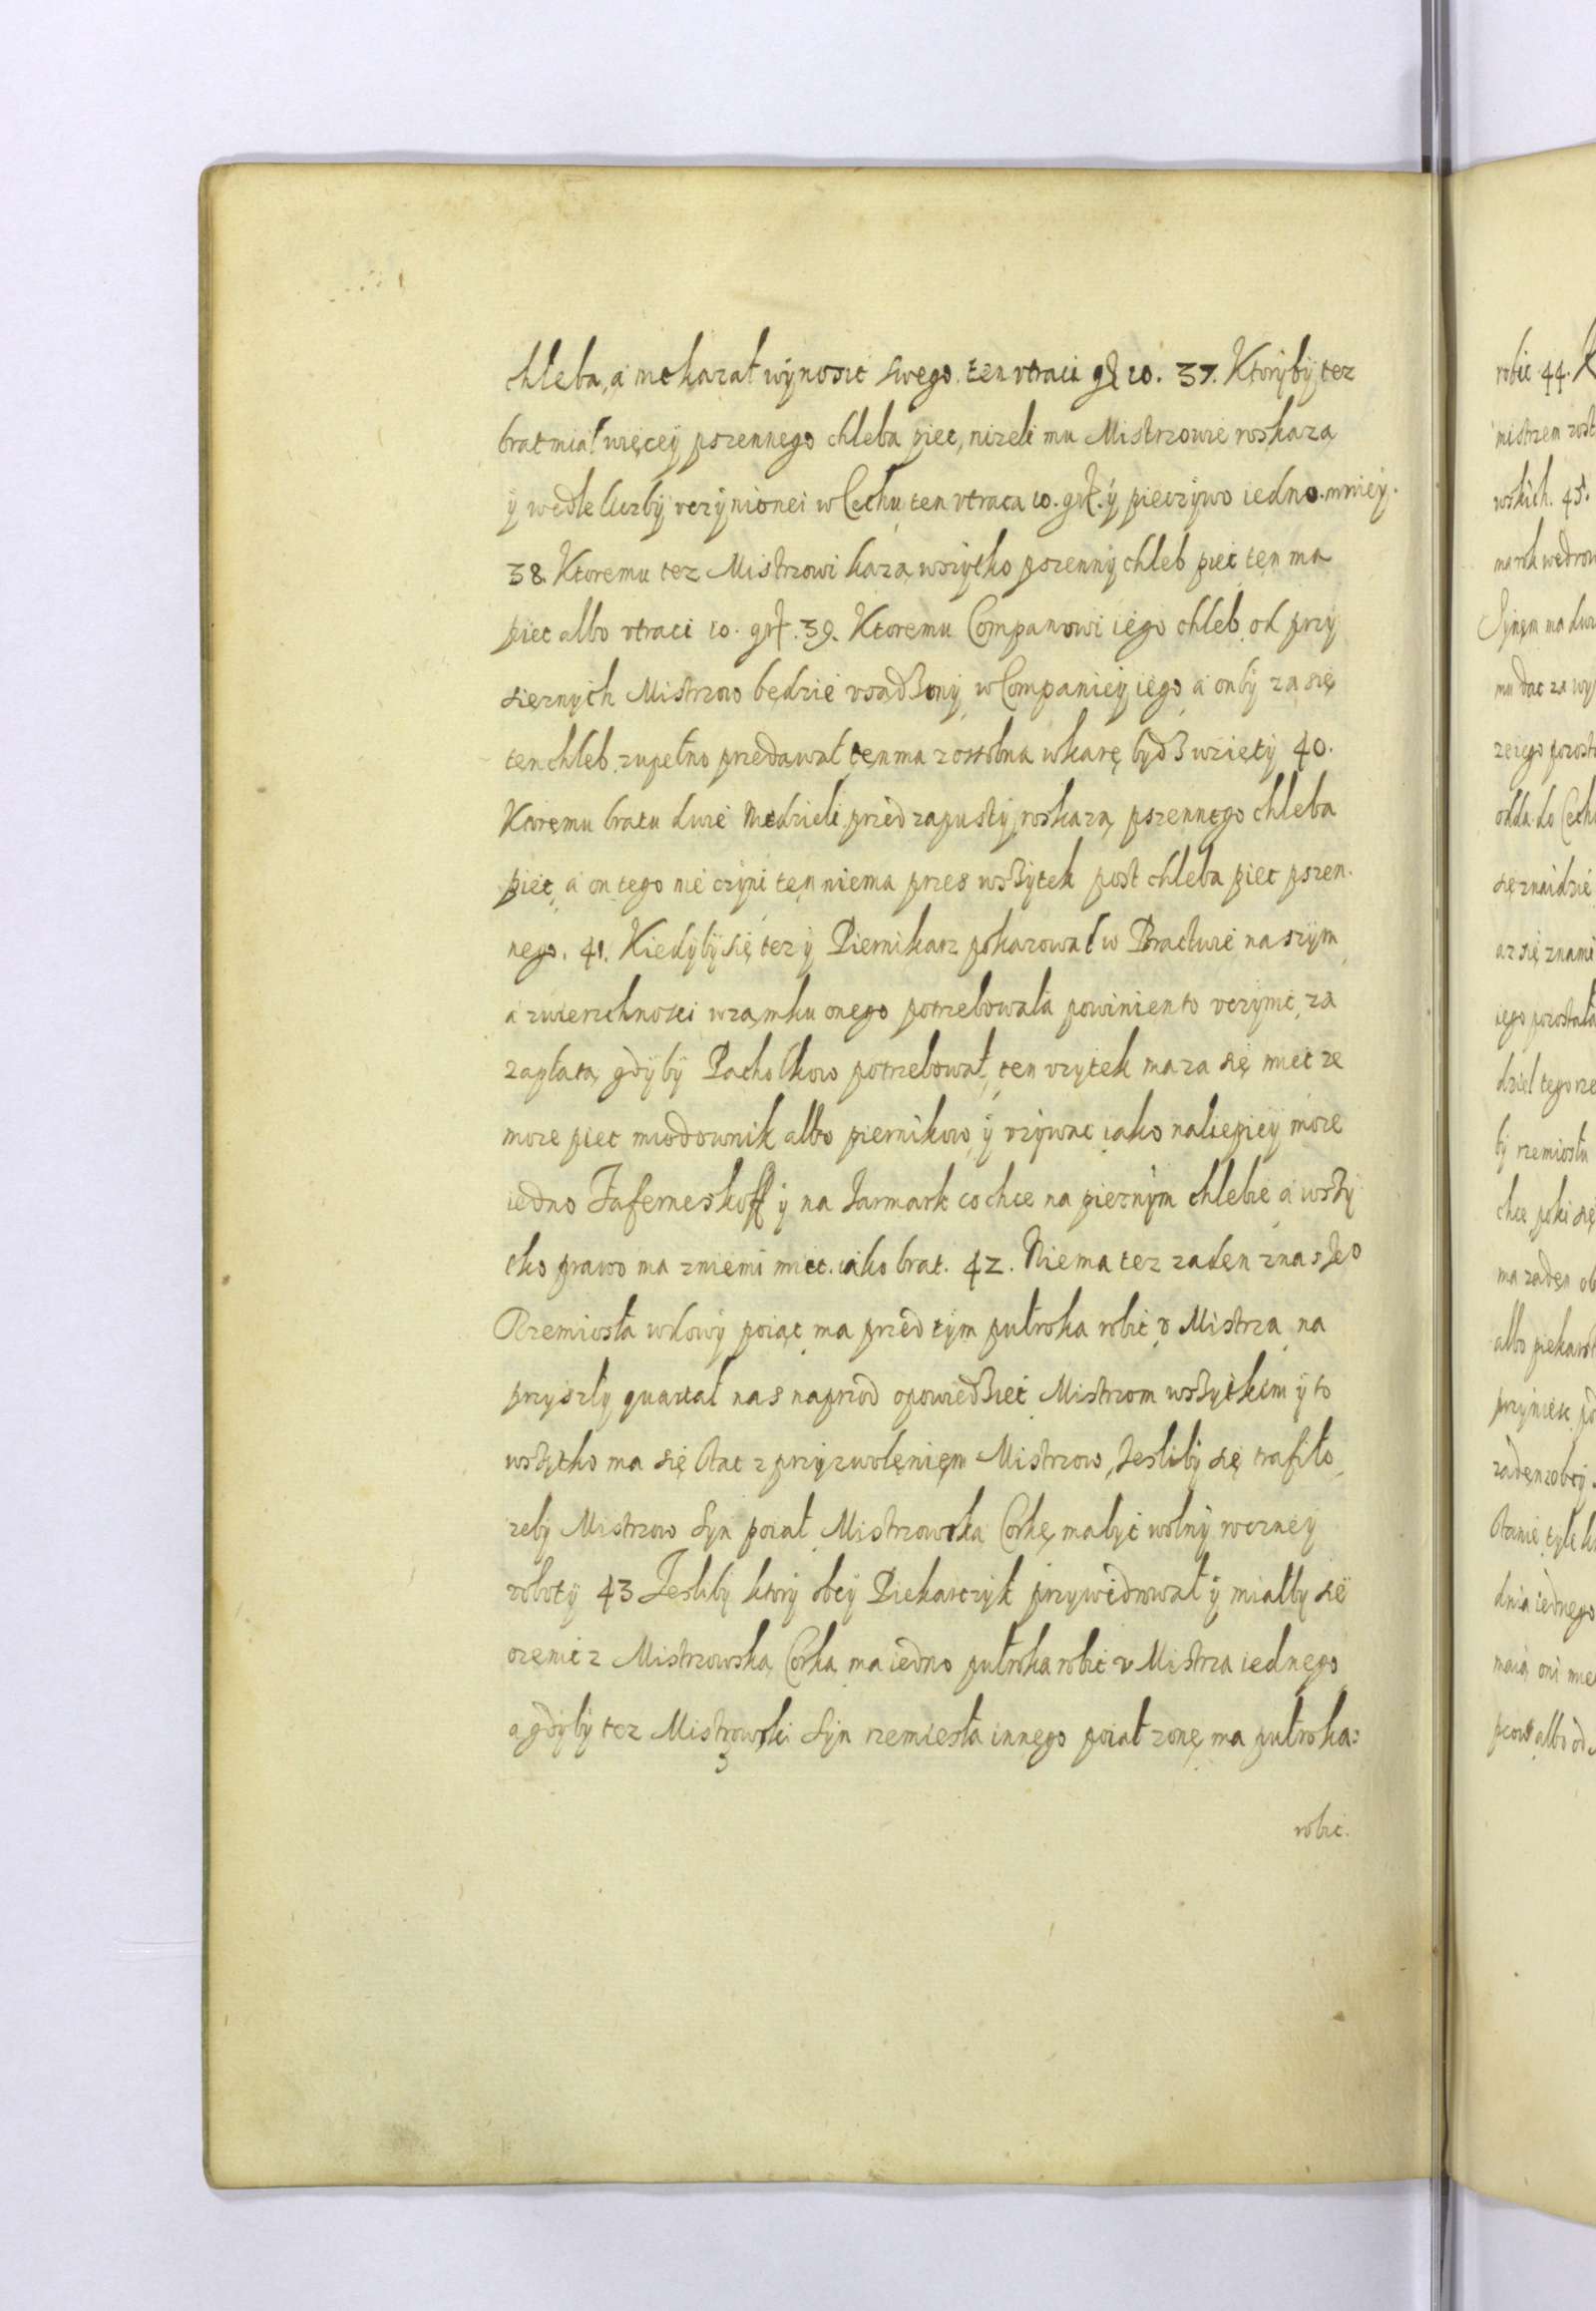 chleba, a nie kazał wÿnosic swego. ten vtraci gß 10. 37. Ktorÿbÿ tez
brat miał więceÿ pszennego chleba piec, nizeli mu Mistrzowie roskazą
ÿ wedle liczbÿ vczÿnionei w Cechu ten vtraca 10. grß. ÿ pieczÿwo iedno mnieÿ.
38. Ktoremu tez Mistrzowi kazą wszÿtko pszennÿ chleb piec ten ma
piec albo vtraci 10. grß. 39. Ktoremu Companowi iego chleb od przÿ
sieznÿch Mistrzow będzie vsadzonÿ w Companieÿ iego a onbÿ za się
ten chleb zupełno predawał ten ma zosobna w karę bydz wziętÿ 40.
Ktoremu bratu dwie Niedzieli przed zapustÿ roskazą pszennego chleba
piec, a on tego nie czÿni ten niema przes wszÿtek post chleba piec pszen-
nego. 41. Kiedÿbÿ się tez ÿ Piernikarz pokazował w Bractwie naszÿm
a zwierzchnosci w zamku onego potrzebowała powinien to vczÿnic, za
zapłatą gdÿbÿ Pachołkow potrzebował, ten vzytek ma za się miec ze
moze piec miodownik albo piernikow, ÿ vzÿwac iako naliepieÿ moze
iedno Faferneskoff ÿ na Jarmark co chce na pieznÿm chlebie a wszÿ
tko prawo ma zniemi miec. iako brat. 42. Niema tez zaden z naszego
Rzemiosła wdowÿ poiąc ma przed tÿm pułroka robic v Mistrza na
przyszłÿ quartał nas naprzod opowiedziec Mistrzom wszÿtkim ÿ to
wszÿtko ma się stac z prÿzwolęnięm Mistrzow, Jeslibÿ się trafiło
zebÿ Mistrzow Syn poiał Mistrzowską Corkę, ma bÿc wolnÿ roczneÿ
robotÿ 43 Jeslibÿ ktorÿ obcÿ Piekarczÿk przywędrował ÿ miałbÿ się
ozenic z Mistrzowską Corką ma iedno pułroka robic v Mistrza iednego
a gdÿbÿ tez Mistrzowski Syn rzemiesła innego poiał zonę ma pułroka:
robic.